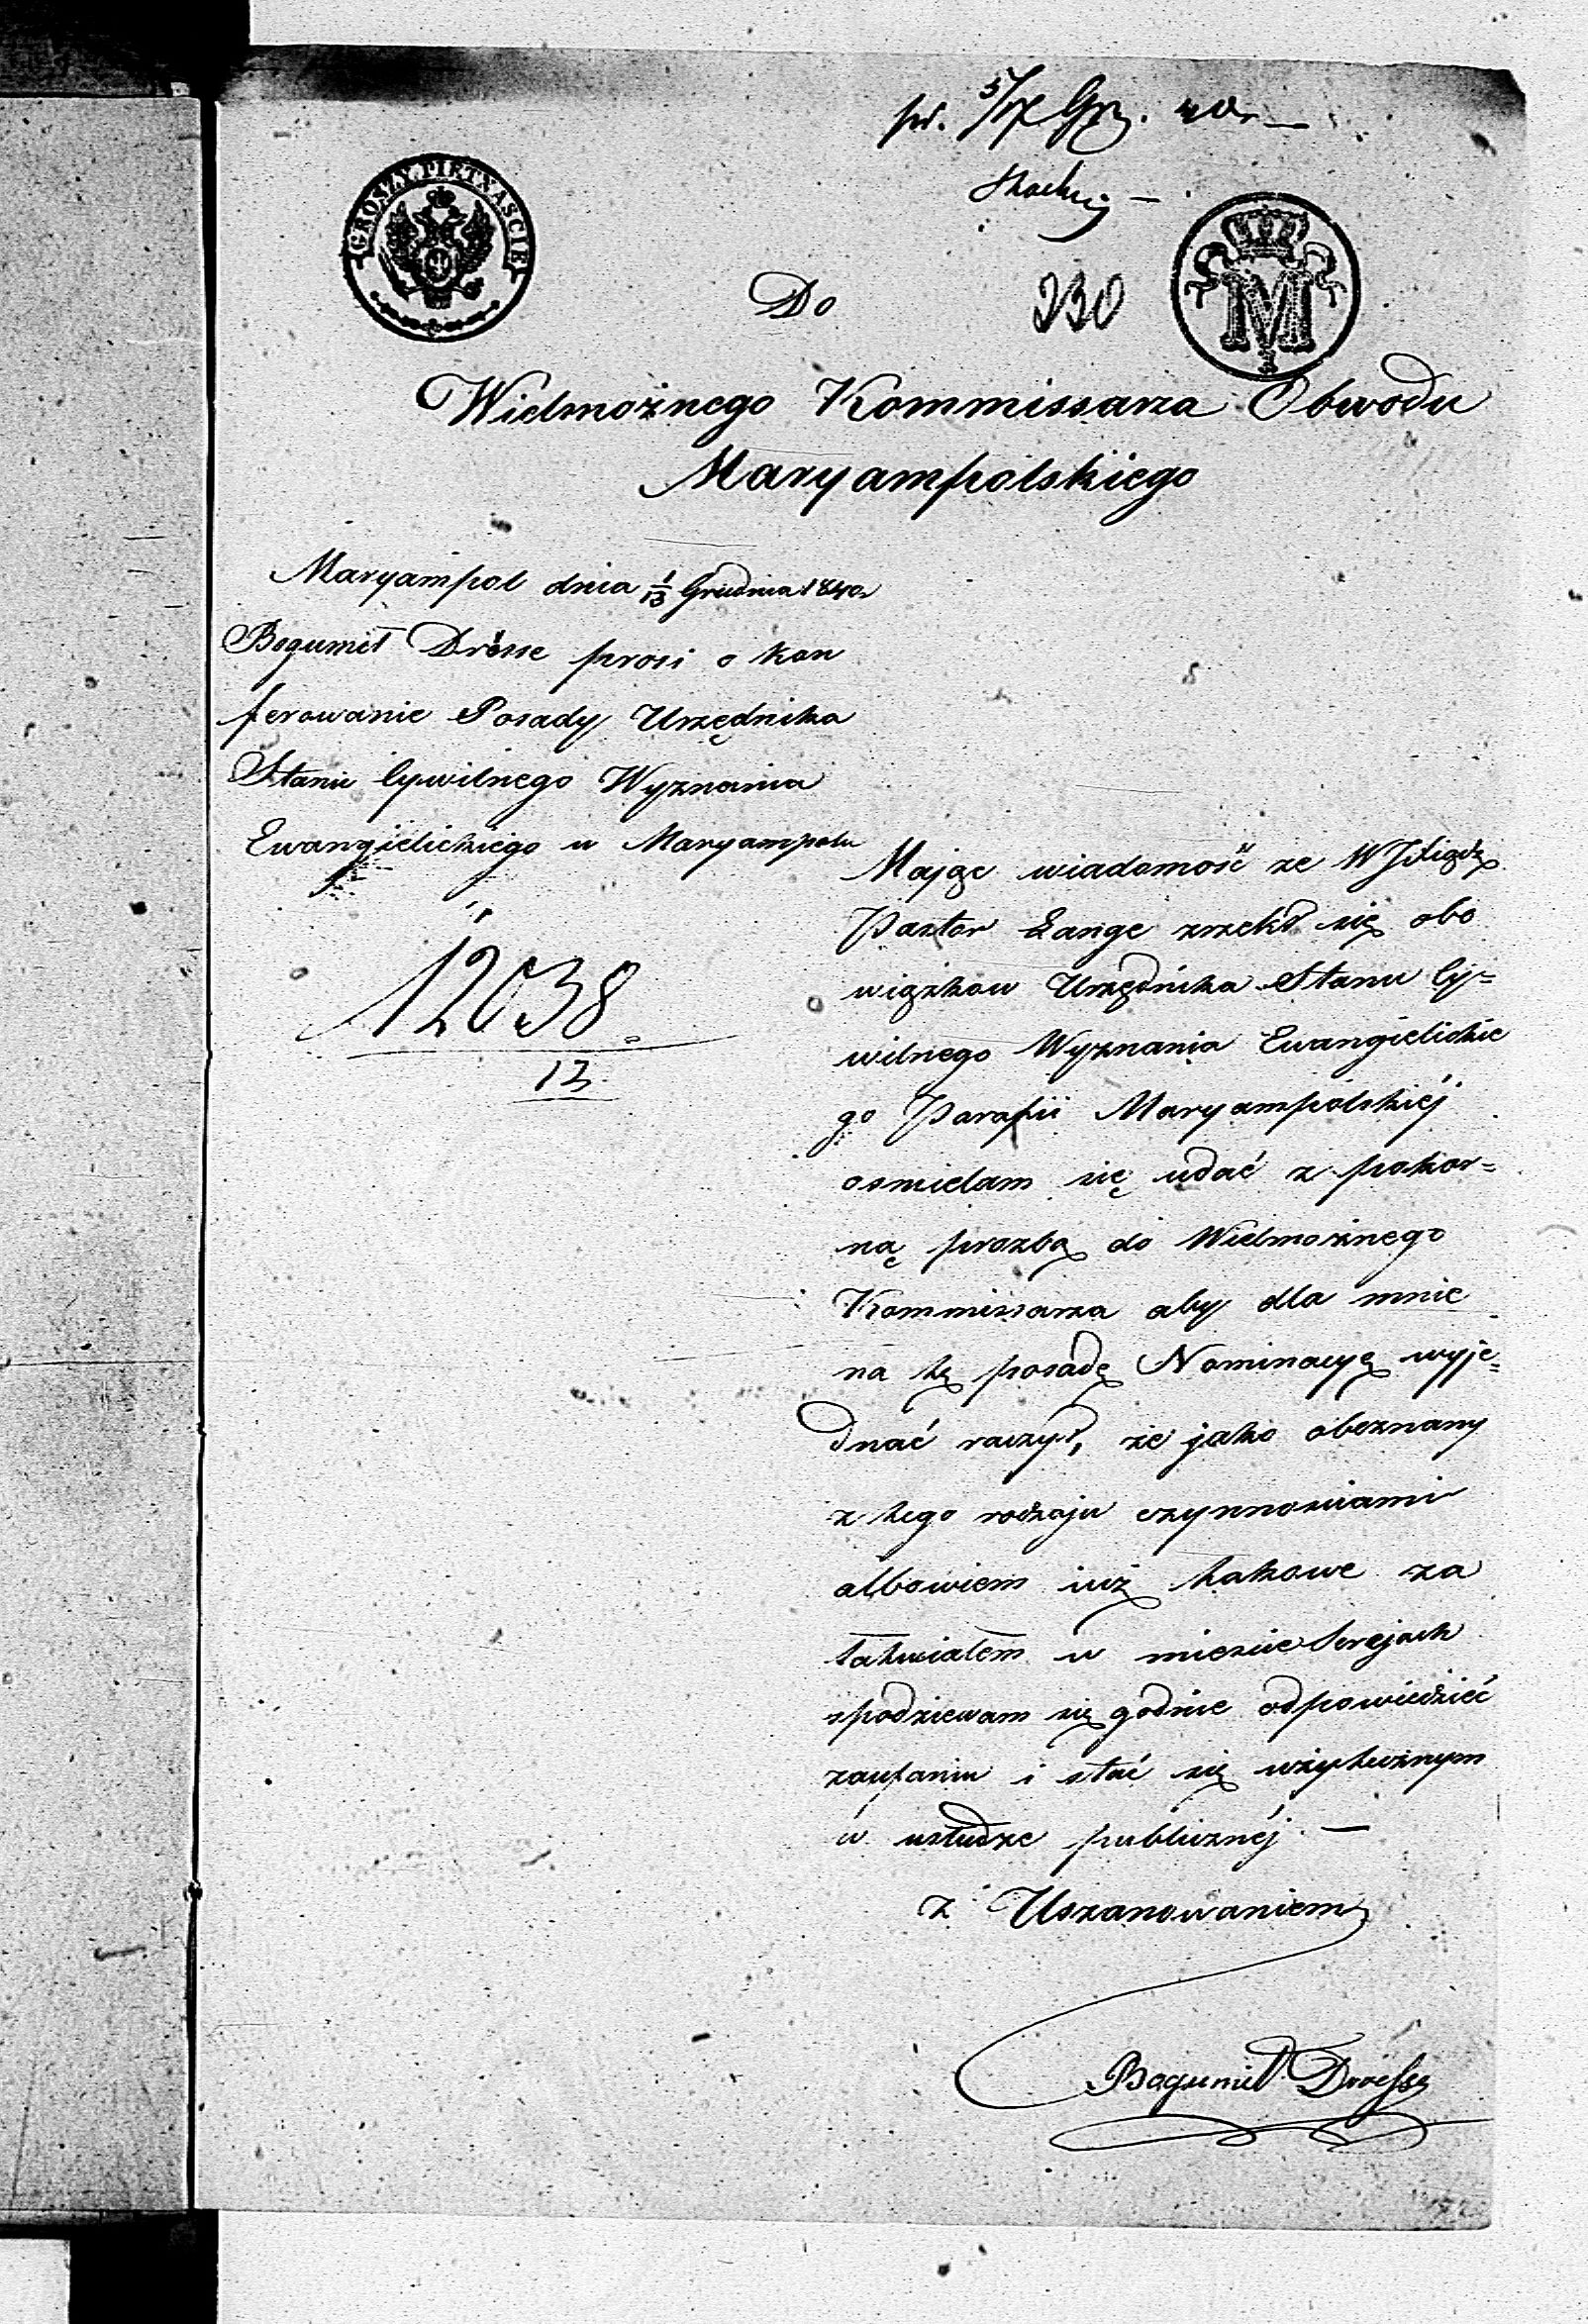 pr. 5/17 Grу. 40r
GROSZY PIETNAŚCIE
Do
230
M
Wielmożnego Kommissarza Obwodu
Maryampolskiego
Maryampol dnia 1/13 Grudnia 1840r
Bogumił Drösse prosi o kon
ferowanie Posady Urzędnika
Stanu Cywilnego Wyznania
Ewangielickiego w Maryampolu
12038
13
Mając wiadomość ze WJXiądz
Pastor Lange zrzekł się obo
wiązkow Urzędnika Stanu Cy=
wilnego Wyznania Ewangielickie
go Parafii Maryampolskiéj
osmielam się udać z pokor=
ną prozbą do Wielmożnego
Kommissarza aby dla mnie
na tę posadę Nominacyę wyje=
dnać raczył, że jako obeznany
z tego rodzaju czynnosciami
albowiem iuż takowe za
łatwiałem w miescie Serejach
spodziewam się godnie odpowiedzieć
zaufaniu i stać się użytecznym
w usłudze publicznéj. —
z Uszanowaniem
Bogumił Droesse